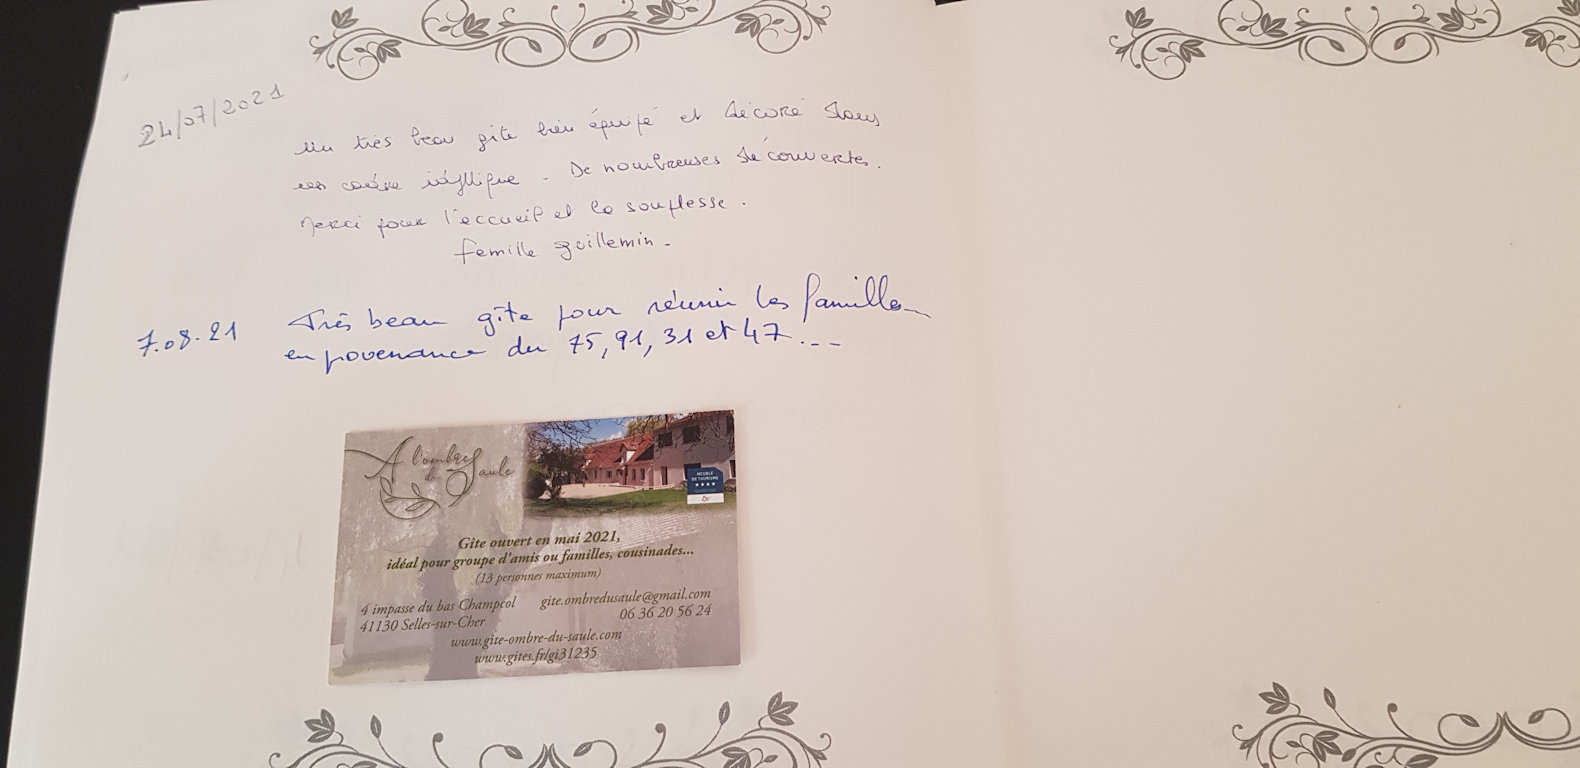 24/07/2021
Un très beau gîte bien équipé et décoré dans
un cadre idyllique. De nombreuses découvertes.
Merci pour l'accueil et la souplesse.
famille guillemin.
7.08.21 Très beau gîte pour réunir les familles
en provenance du 75, 91, 31 et 47...
A l'ombre
du Saule
MEUBLÉ
DE TOURISME
★★★★
Gîte ouvert en mai 2021,
idéal pour groupe d'amis ou familles, cousinades...
(13 personnes maximum)
4 impasse du bas Champcol gite.ombredusaule@gmail.com
41130 Selles-sur-Cher 06 36 20 56 24
www.gite-ombre-du-saule.com
www.gites.fr/gi31235